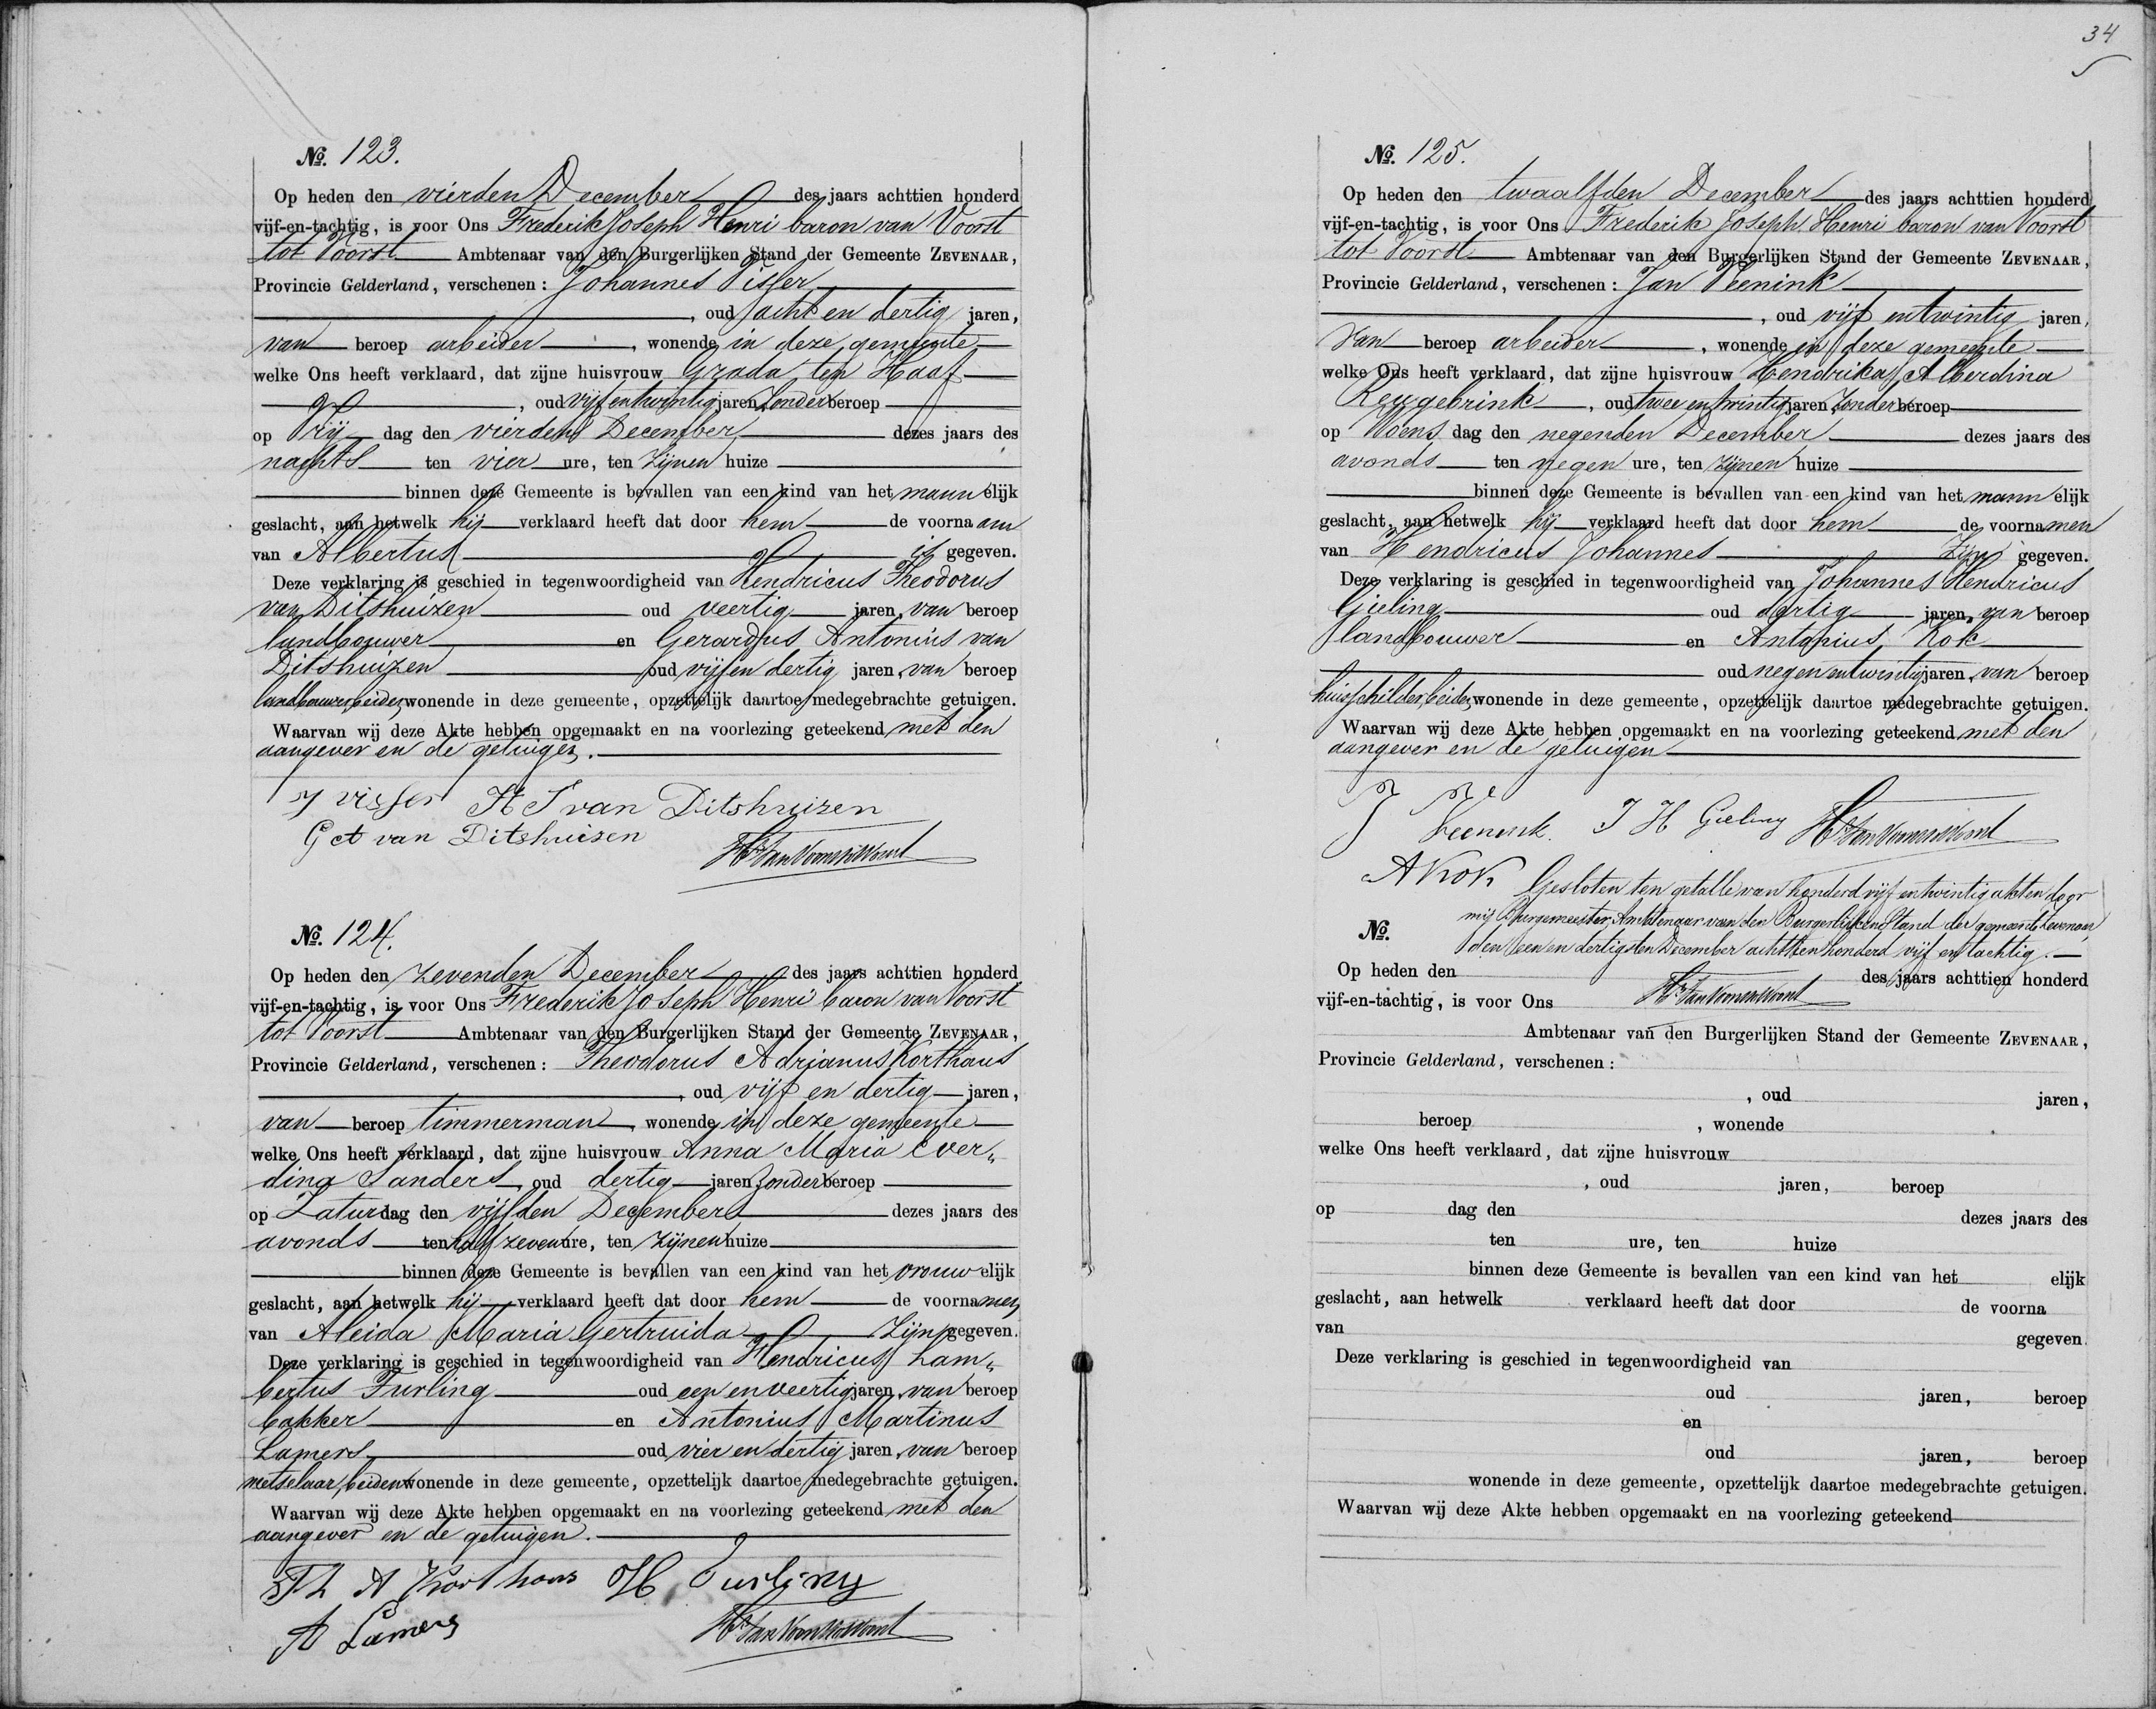 №. 123.
Op heden den vierden December des jaars achttien honderd
vijf-en-tachtig, is voor Ons Frederik Joseph Henri baron van Voorst
tot Voorst Ambtenaar van den Burgerlijken Stand der Gemeente ZEVENAAR,
Provincie Gelderland, verschenen: Johannes Visser
, oud acht en dertig jaren,
van beroep arbeider, wonende in deze gemeente
welke Ons heeft verklaard, dat zijne huisvrouw Grada ten Haaf
, oud vijf en twintig jaren, zonder beroep
op Vrij dag den vierden December dezes jaars des
nachts ten vier ure, ten zijnen huize
binnen deze Gemeente is bevallen van een kind van het mann elijk
geslacht, aan hetwelk hij verklaard heeft dat door hem de voorna am
van Albertus is gegeven.
Deze verklaring is geschied in tegenwoordigheid van Hendricus Theodorus
van Ditshuizen oud veertig jaren, van beroep
landbouwer en Gerardus Antonius van
Ditshuizen oud vijf en dertig jaren, van beroep
landbouwer, beiden wonende in deze gemeente, opzettelijk daartoe medegebrachte getuigen.
Waarvan wij deze Akte hebben opgemaakt en na voorlezing geteekend met den
aangever en de getuigen.
J Visser H T van Ditshuizen
G A van Ditshuizen
№. 124.
Op heden den zevenden December des jaars achttien honderd
vijf-en-tachtig, is voor Ons Frederik Joseph Henri baron van Voorst
tot Voorst Ambtenaar van den Burgerlijken Stand der Gemeente ZEVENAAR,
Provincie Gelderland, verschenen: Theodorus Adrianus Korthaus
, oud vijf en dertig jaren,
van beroep timmerman, wonende in deze gemeente
welke Ons heeft verklaard, dat zijne huisvrouw Anna Maria Ever„
dina Sanders, oud dertig jaren, zonder beroep
op Zatur dag den vijfden December dezes jaars des
avonds ten half zeven ure, ten zijnen huize
binnen deze Gemeente is bevallen van een kind van het vrouw elijk
geslacht, aan hetwelk hij verklaard heeft dat door hem de voorna men
van Aleida Maria Gertruida zijn gegeven.
Deze verklaring is geschied in tegenwoordigheid van Hendricus Lam„
bertus Turling oud een en veertig jaren, van beroep
bakker en Antonius Martinus
Lamers oud vier en dertig jaren, van beroep
metselaar, beiden wonende in deze gemeente, opzettelijk daartoe medegebrachte getuigen.
Waarvan wij deze Akte hebben opgemaakt en na voorlezing geteekend met den
aangever en de getuigen.
Th A Korthaus H Turling
A Lamers
34
№. 125.
Op heden den twaalfden December des jaars achttien honderd
vijf-en-tachtig, is voor Ons Frederik Joseph Henri baron van Voorst
tot Voorst Ambtenaar van den Burgerlijken Stand der Gemeente ZEVENAAR,
Provincie Gelderland, verschenen: Jan Veenink
, oud vijf en twintig jaren,
van beroep arbeider, wonende in deze gemeente
welke Ons heeft verklaard, dat zijne huisvrouw Hendrika Alberdina
Reugebrink, oud twee en twintig jaren, zonder beroep
op Woens dag den negenden December dezes jaars des
avonds ten negen ure, ten zijnen huize
binnen deze Gemeente is bevallen van een kind van het mann elijk
geslacht, aan hetwelk hij verklaard heeft dat door hem de voorna men
van Hendricus Johannes zijn gegeven.
Deze verklaring is geschied in tegenwoordigheid van Johannes Hendricus
Gieling oud dertig jaren, van beroep
landbouwer en Antonius Kok
oud negen en twintig jaren, van beroep
huisschilder, beiden wonende in deze gemeente, opzettelijk daartoe medegebrachte getuigen.
Waarvan wij deze Akte hebben opgemaakt en na voorlezing geteekend met den
aangever en de getuigen
J Veenink. J H Gieling
A Kok
Gesloten ten getalle van honderd vijf en twintig akten door
mij Burgemeester, Ambtenaar van den Burgerlijken Stand der gemeente Zevenaar,
den een en dertigsten December achttien honderd vijf en tachtig.
№.
Op heden den des jaars achttien honderd
vijf-en-tachtig, is voor Ons
Ambtenaar van den Burgerlijken Stand der Gemeente ZEVENAAR,
Provincie Gelderland, verschenen:
, oud jaren,
beroep , wonende
welke Ons heeft verklaard, dat zijne huisvrouw
, oud jaren, beroep
op dag den dezes jaars des
ten ure, ten huize
binnen deze Gemeente is bevallen van een kind van het elijk
geslacht, aan hetwelk verklaard heeft dat door de voorna
van gegeven.
Deze verklaring is geschied in tegenwoordigheid van
oud jaren, beroep
en
oud jaren, beroep
wonende in deze gemeente, opzettelijk daartoe medegebrachte getuigen.
Waarvan wij deze Akte hebben opgemaakt en na voorlezing geteekend